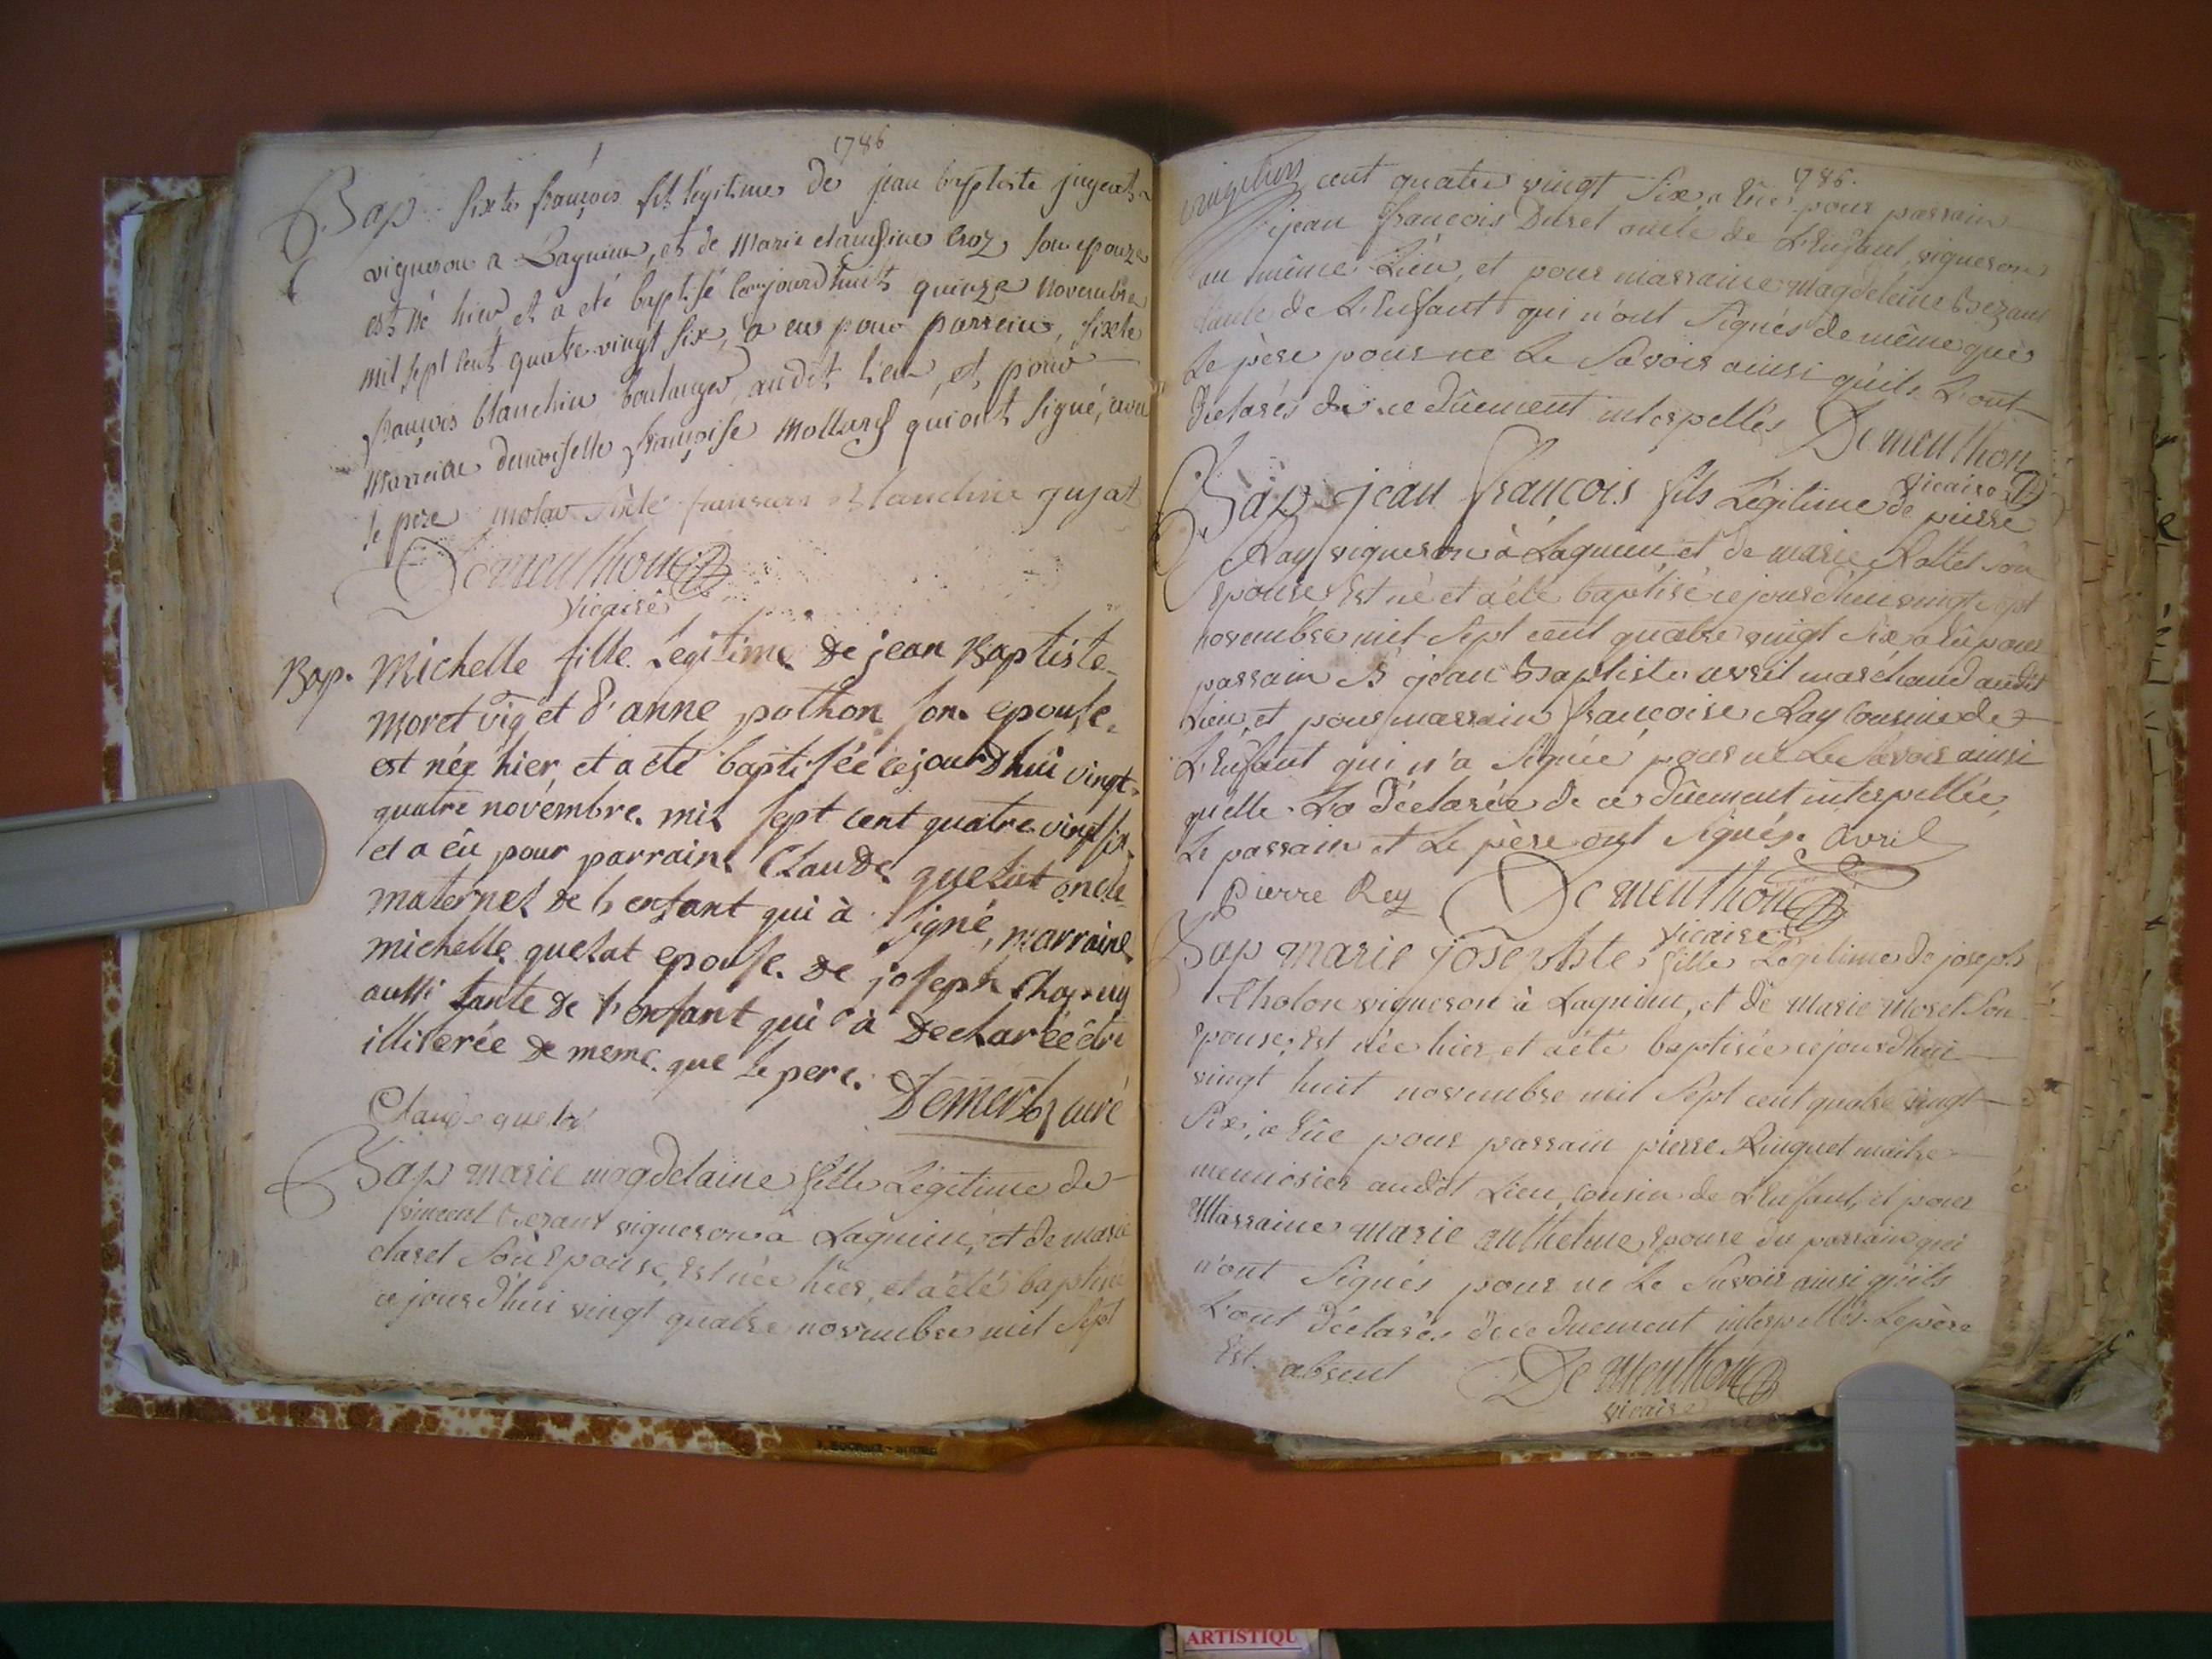 1786
Bap. sixte françois fils légitime de jean baptiste jugeat
vigneron a Lagnieu, et de Marie claudine Croz son epouze
est né hier et a eté baptisé cejourdhuit quinze novembre
mil sept cent quatre vingt six, a eu pour parrein, sixte
françois blanchin boulanger audit lieu, et pour
marreine demoiselle françoise Mollard qui ont signé, avec
le pere molar sixte francois blanchin jujat
Dementhon
vicaire
Bap. Michelle fille Legitime De jean Baptiste
Moret vig et d'anne pothon son epouse
est née hier et a eté baptisée cejourdhui vingt
quatre novembre mil sept cent quatre vingt six
et a eü pour parrain Claude quelat oncle
maternel de l'enfant qui à signé, marraine
michelle quelat epouse De joseph
aussi tante de l'enfant qui à Declareé être
illiterée De meme que le pere.
Claude quela curé
Bap marie magdelaine fille Légitime de
vincent vigneron à Lagnieu, et de marie
son Epouse, Est née hier, et a été baptisée
ce jourd'hui vingt quatre novembre mil sept
1786.
cent quatre vingt six a Eüe pour parrain
jean francois Duret oncle de L'Enfant, vigneron
au même Lieu, et pour marraine Magdeleine
tante de L'Enfant qui n'ont signés de même que
Le père pour ne Le savoir ainsi qu'ils L'ont
déclarés de ce düement interpellés Dementhon
vicaire
Bap jean francois fils Légitime de pierre
Ray vigneron à Lagnieu et de marie Rollet son
Epouse Est né et a été baptisé ce jourd'hui vingt sept
novembre mil sept cent quatre vingt six a Eü pour
parrain Sr jean Baptiste avril marchand audit
Lieu, et pour marrain francoise Ray Cousine de
L'Enfant qui n'a signée pour ne Le savoir ainsi
qu'elle La déclarée de ce düement interpellée,
Le parrain et Le père ont signés. avril
pierre Rey Dementhon
vicaire
Bap marie josephte fille Légitime de joseph
vigneron à Lagnieu, et de marie Moret son
Epouse, Est née hier, et a été baptisée ce jourd'hui
vingt huit novembre mil sept cent quatre vingt
six, a Eüe pour parrain pierre Ringuet maitre
menuosier audit Lieu, cousin de L'Enfant, et pour
Marraine marie anthelme Epouse du parrain qui
n'ont signés pour ne Le savoir ainsi qu'ils
L'ont déclarés de ce duement interpellés. Le père
Est absent Dementhon
vicaire
ARTISTIQU